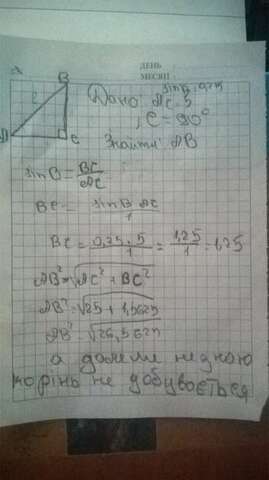 ДЕНЬ
МЕСЯЦ
B
C
Дано: AC = 5
sin B = 0,25
C = 90°
Знайти AB
sin B = BC / AC
BC = sin B · AC / 1
BC = 0,25 · 5 / 1 = 1,25 / 1 = 1,25
AB² = √AC² + BC²
AB² = √25 + 1,5625
AB² = √26,5625
а далі не знаю
корінь не добувається